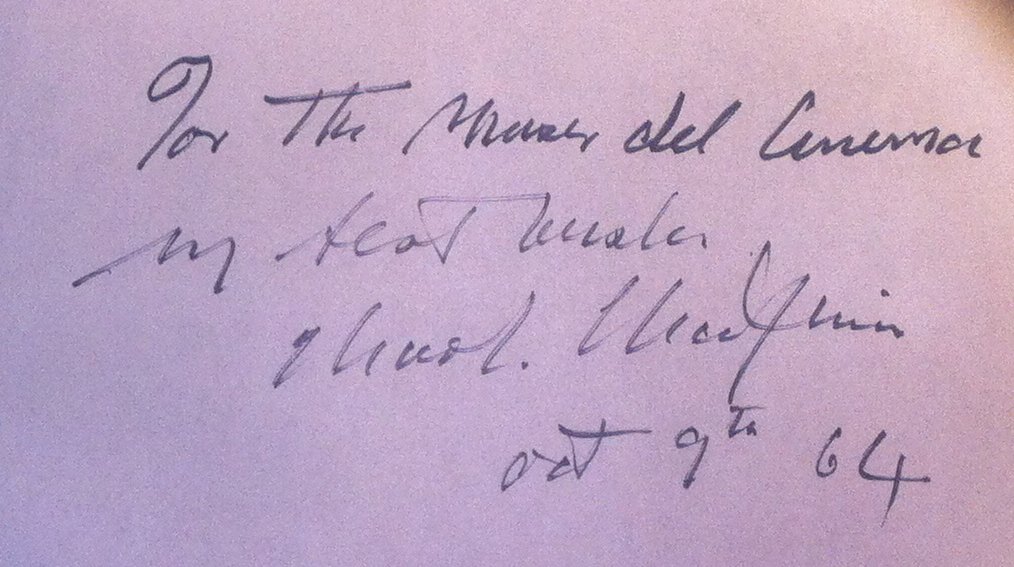 For The Museo del Cinema
my best wishes
Chas. Chaplin
oct 9th 64